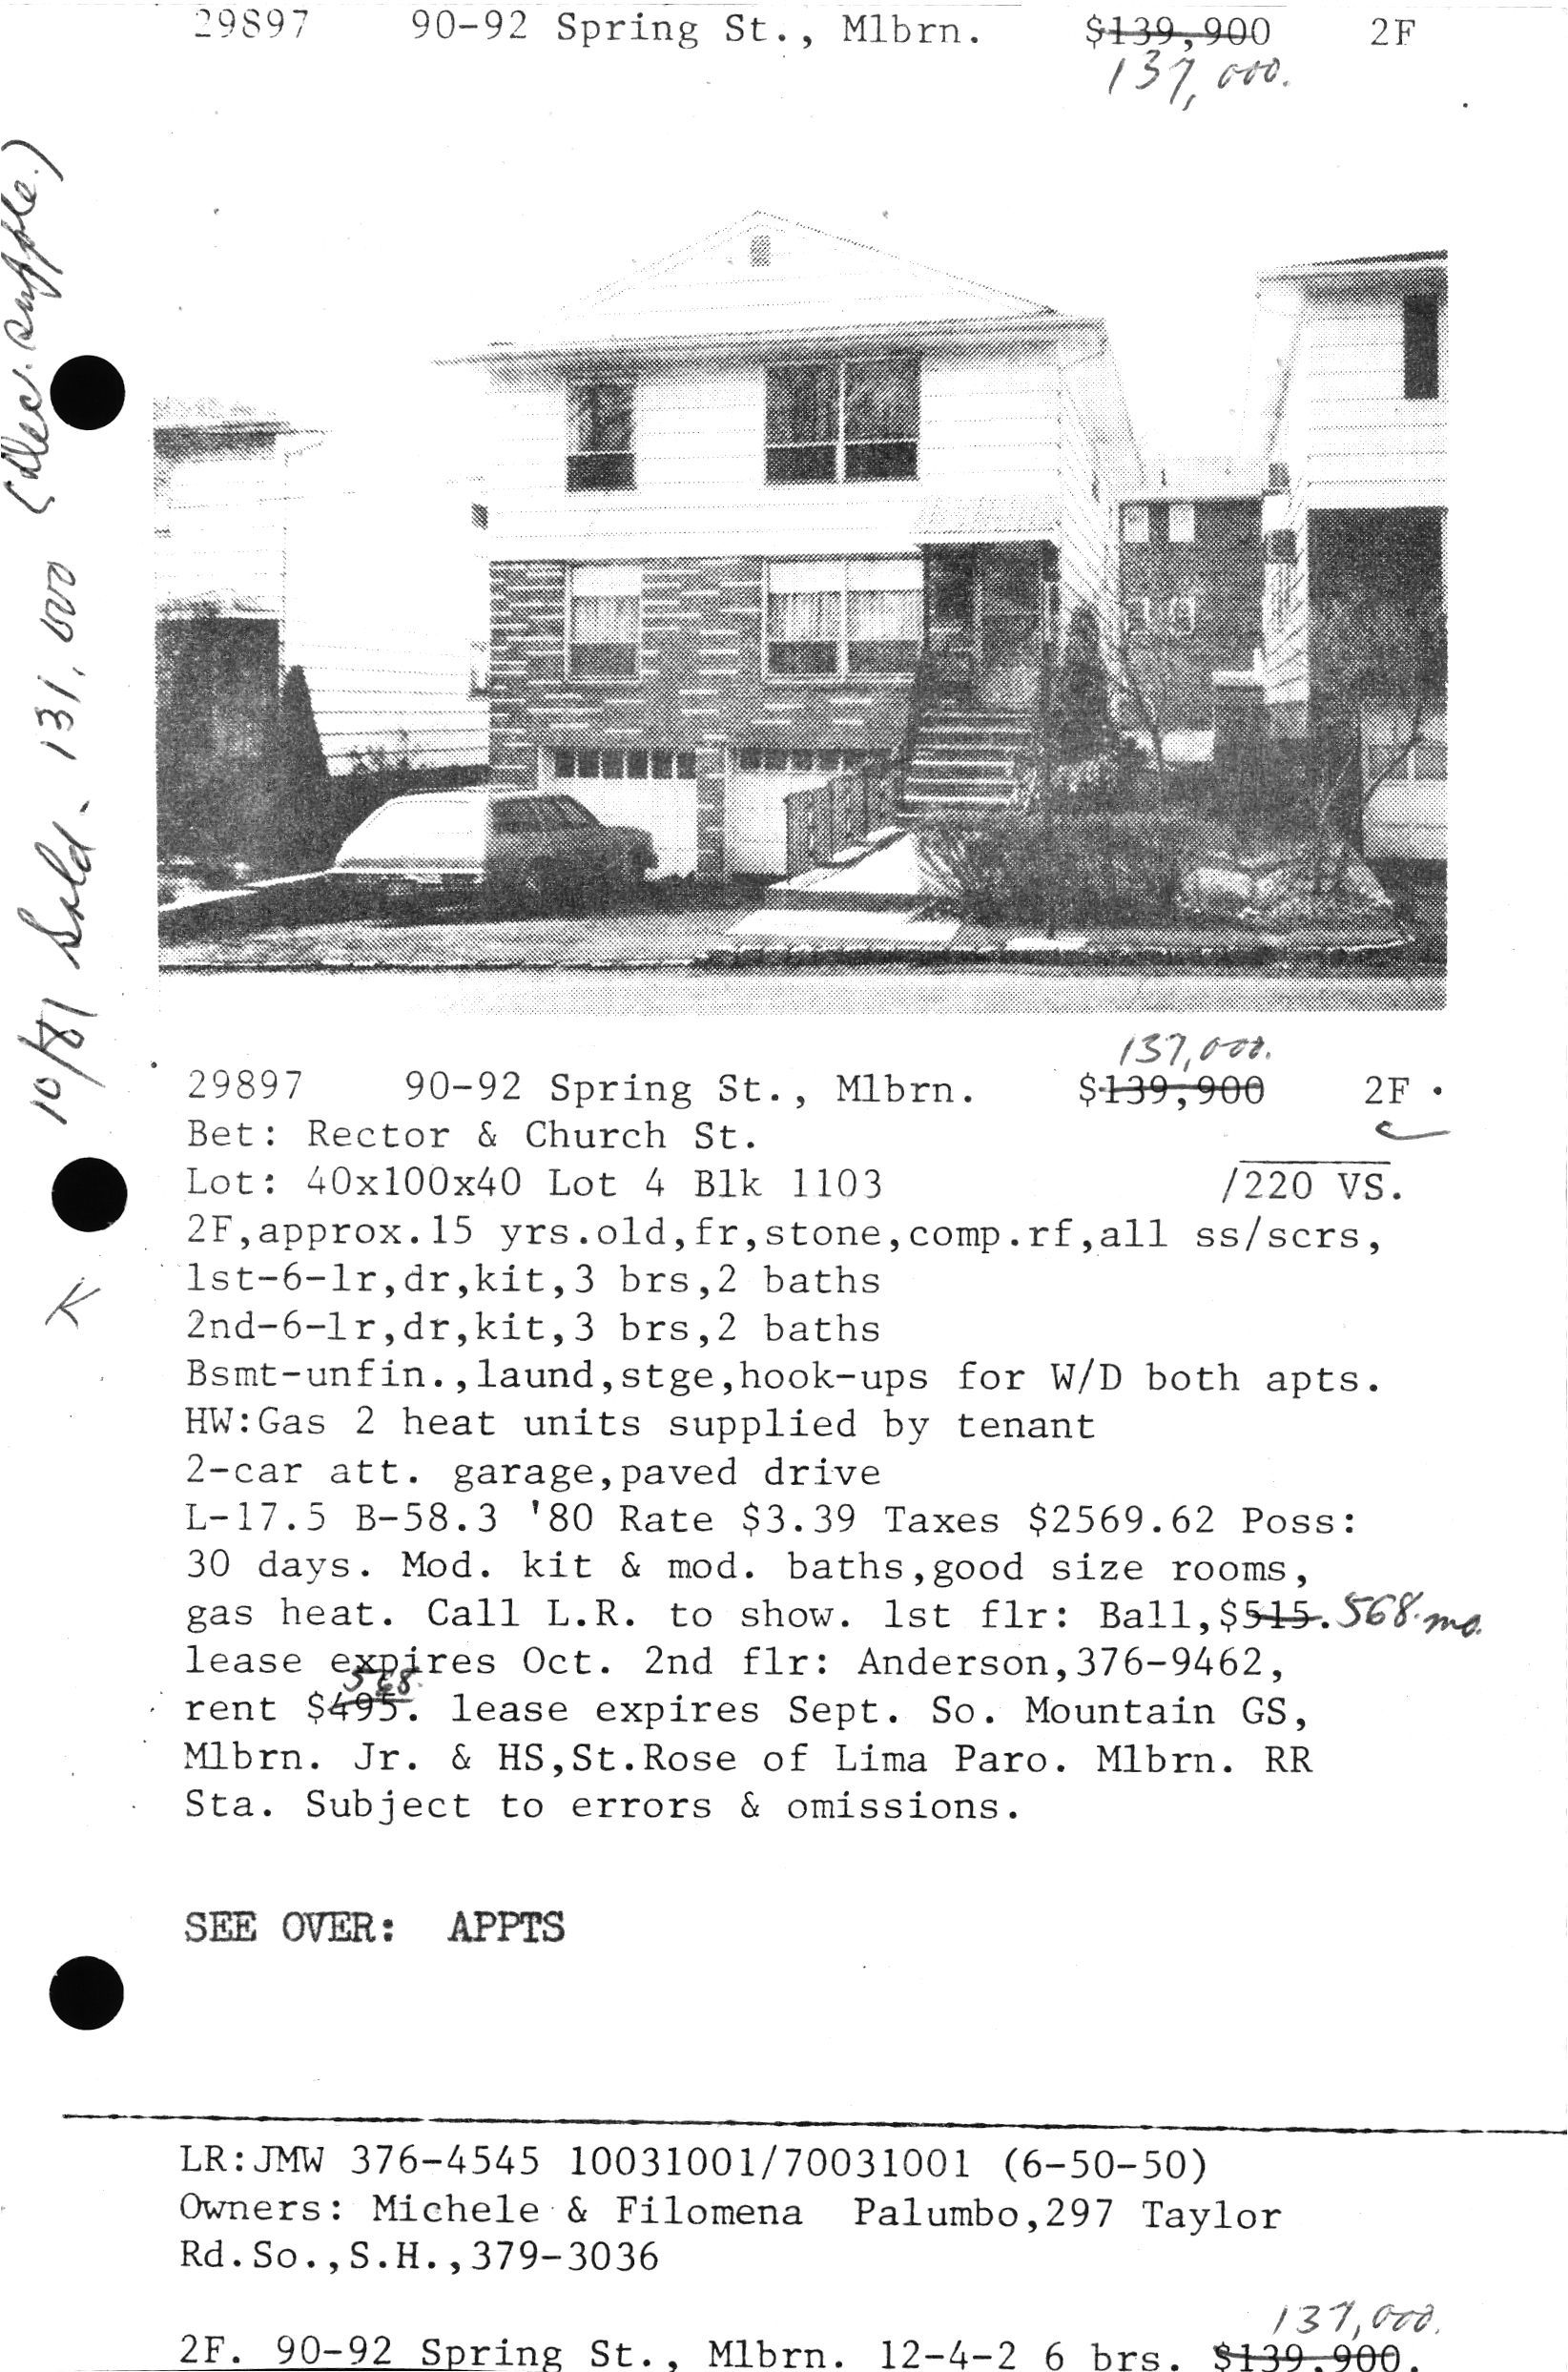 29897 90-92 Spring St., Mlbrn. $139,900 2F
137,000.
10/81 Sold - 131,000 (Dec. supple.)
137,000.
29897 90-92 Spring St., Mlbrn. $139,900 2F
Bet: Rector & Church St.
Lot: 40x100x40 Lot 4 Blk 1103 /220 VS.
2F,approx.15 yrs.old,fr,stone,comp.rf,all ss/scrs,
1st-6-lr,dr,kit,3 brs,2 baths
K
2nd-6-lr,dr,kit,3 brs,2 baths
Bsmt-unfin.,laund,stge,hook-ups for W/D both apts.
HW:Gas 2 heat units supplied by tenant
2-car att. garage,paved drive
L-17.5 B-58.3 '80 Rate $3.39 Taxes $2569.62 Poss:
30 days. Mod. kit & mod. baths,good size rooms,
gas heat. Call L.R. to show. 1st flr: Ball,$515. 568. mo.
lease expires Oct. 2nd flr: Anderson,376-9462,
568.
rent $495. lease expires Sept. So. Mountain GS,
Mlbrn. Jr. & HS,St.Rose of Lima Paro. Mlbrn. RR
Sta. Subject to errors & omissions.
SEE OVER: APPTS
LR:JMW 376-4545 10031001/70031001 (6-50-50)
Owners: Michele & Filomena Palumbo,297 Taylor
Rd.So.,S.H.,379-3036
137,000.
2F. 90-92 Spring St., Mlbrn. 12-4-2 6 brs. $139,900.